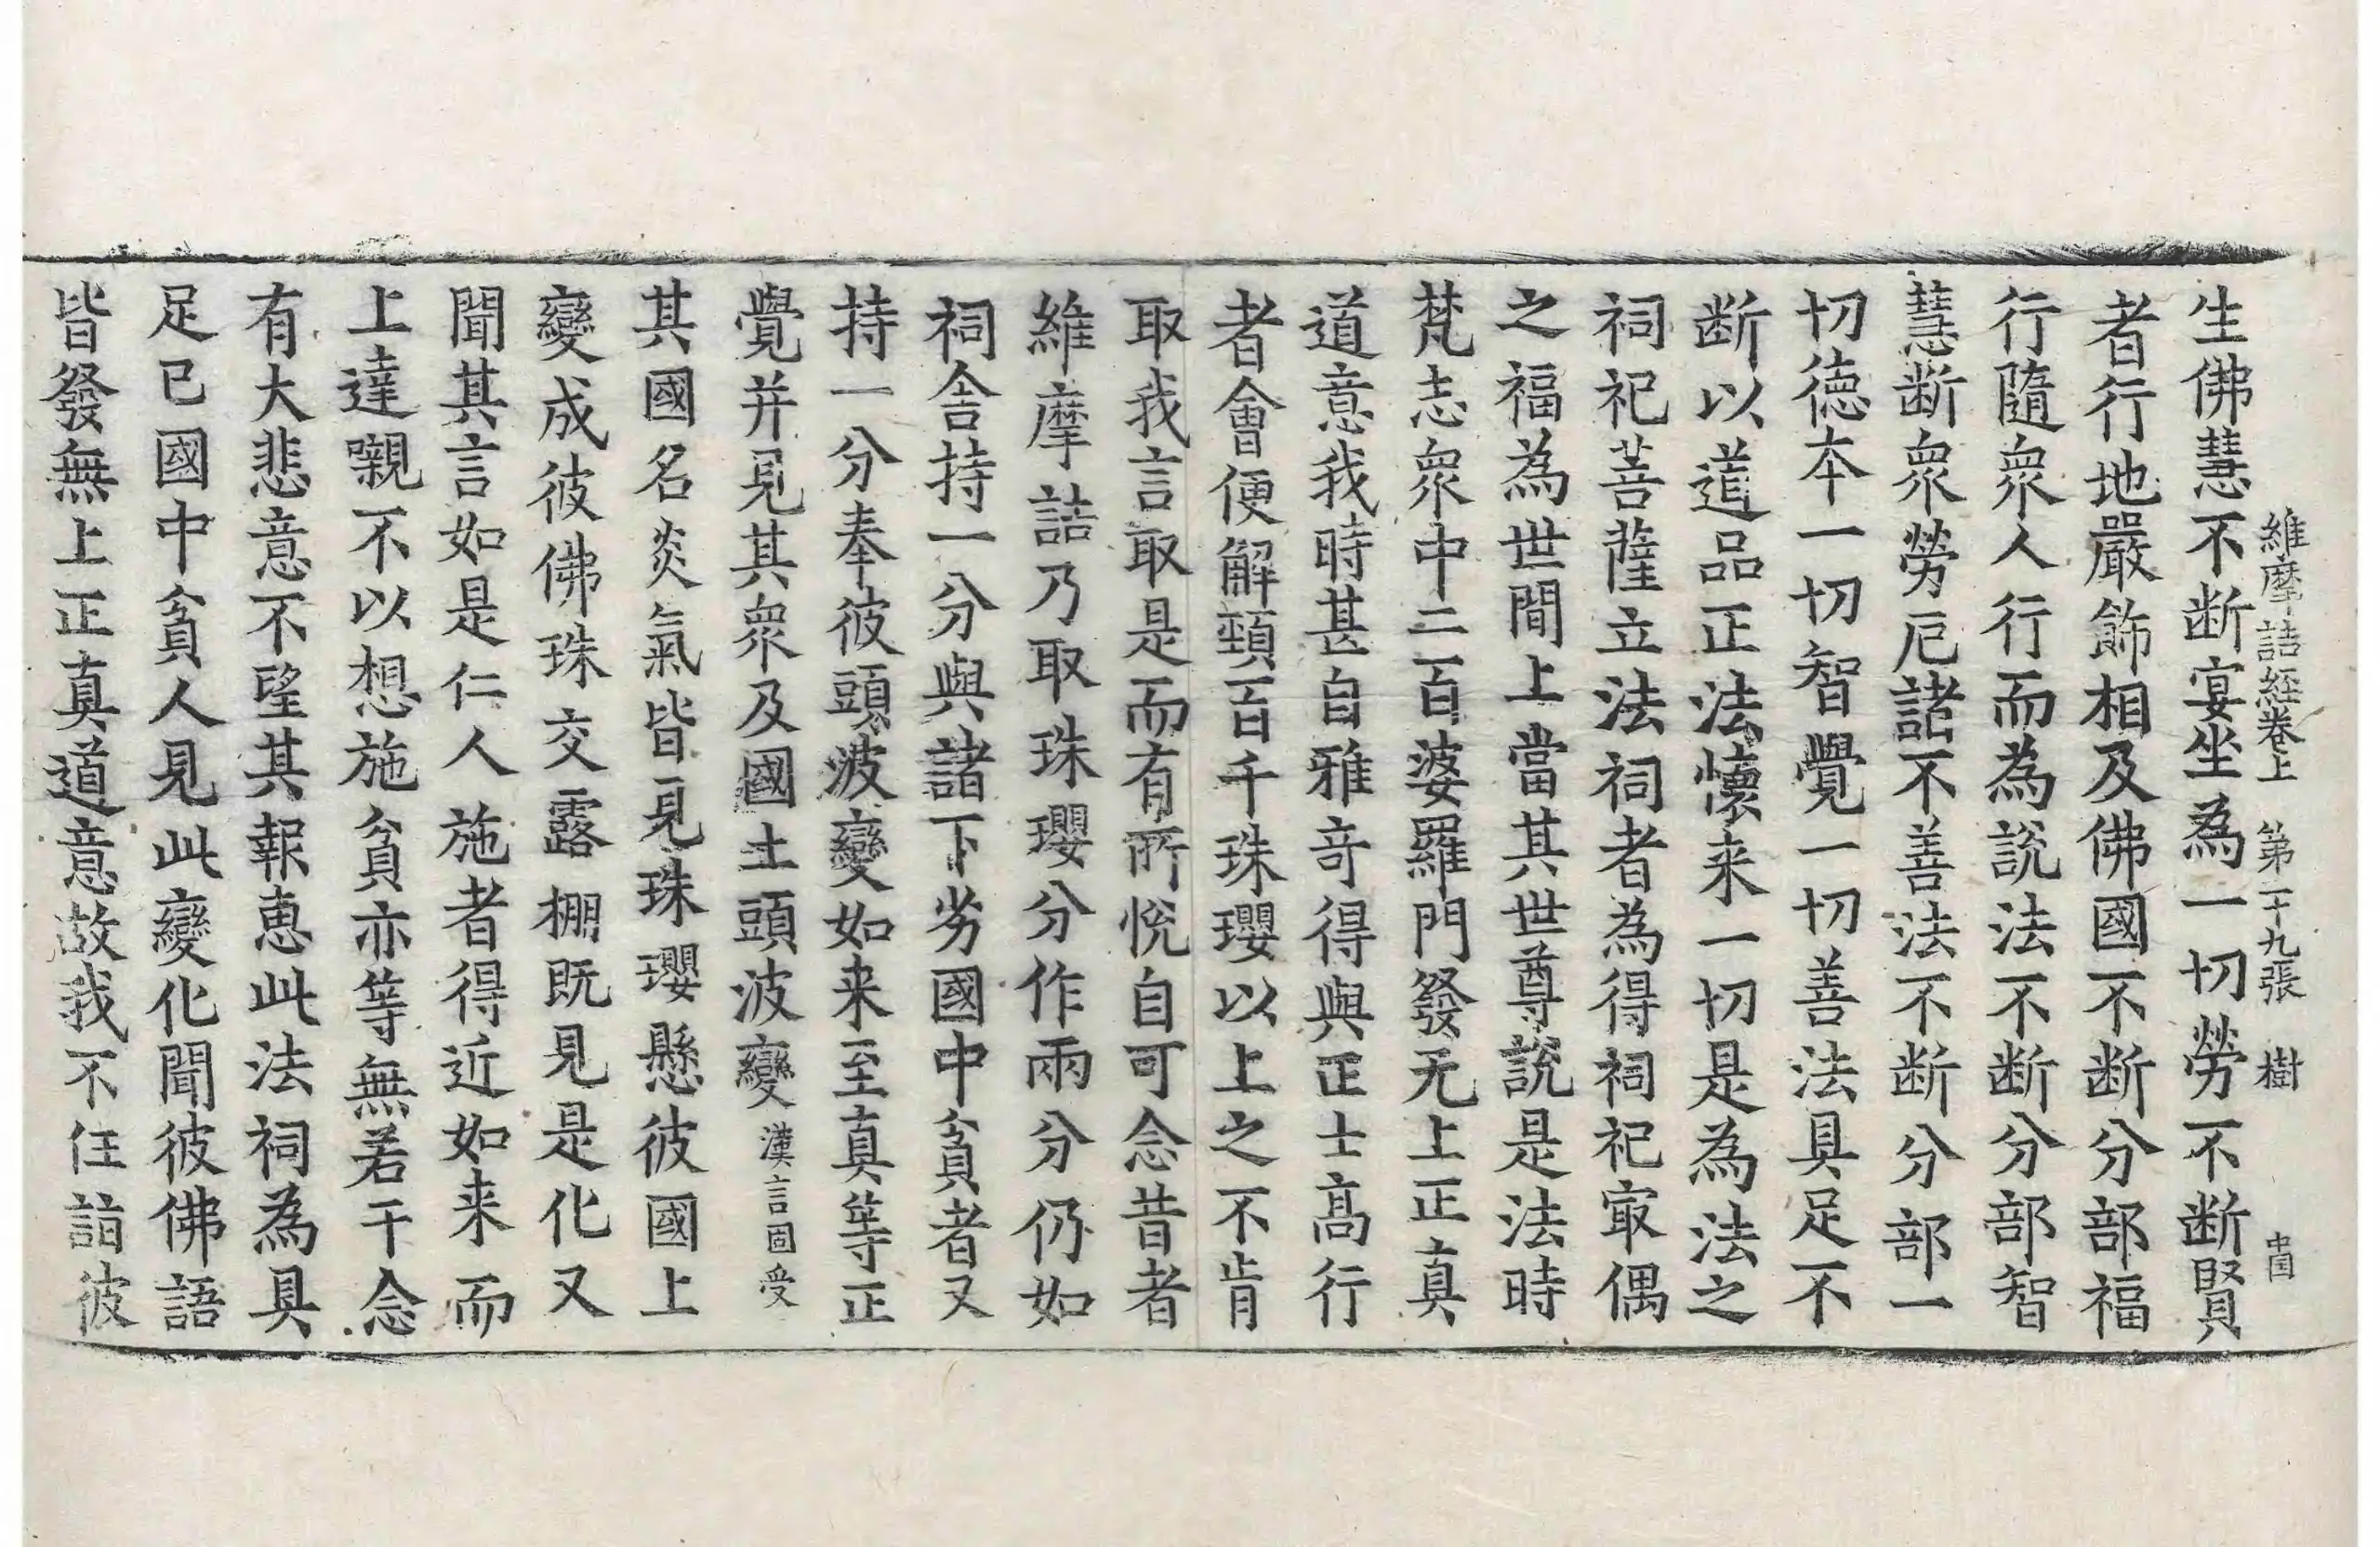 維摩詰経卷上 第二十九張 樹
生佛慧不断宴坐為一切勞不断賢
者行地嚴飾相及佛國不断分部福
行隨衆人行而為說法不断分部智
慧断衆勞厄諸不善法不断分部一
切德本一切智覺一切善法具足不
断以道品正法懷来一切是為法之
祠祀菩薩立法祠者為得祠祀㝡偶
之福為世間上當其世尊說是法時
梵志衆中二百婆羅門發无上正真
道意我時甚自雅奇得與正士高行
者會便解頸百千珠瓔以上之不肯
取我言取是而有所悅自可念昔者
維摩詰乃取珠瓔分作兩分仍如
祠舍持一分與諸下劣國中貧者又
持一分奉彼頭波變如来至真等正
覺并見其衆及國土頭波變漢言固受
其國名炎氣皆見珠瓔懸彼國上
變成彼佛珠交露棚既見是化又
聞其言如是仁人施者得近如来而
上達嚫不以想施貧亦等無若干念
有大悲意不望其報惠此法祠為具
足已國中貧人見此變化聞彼佛語
皆發無上正真道意故我不任詣彼